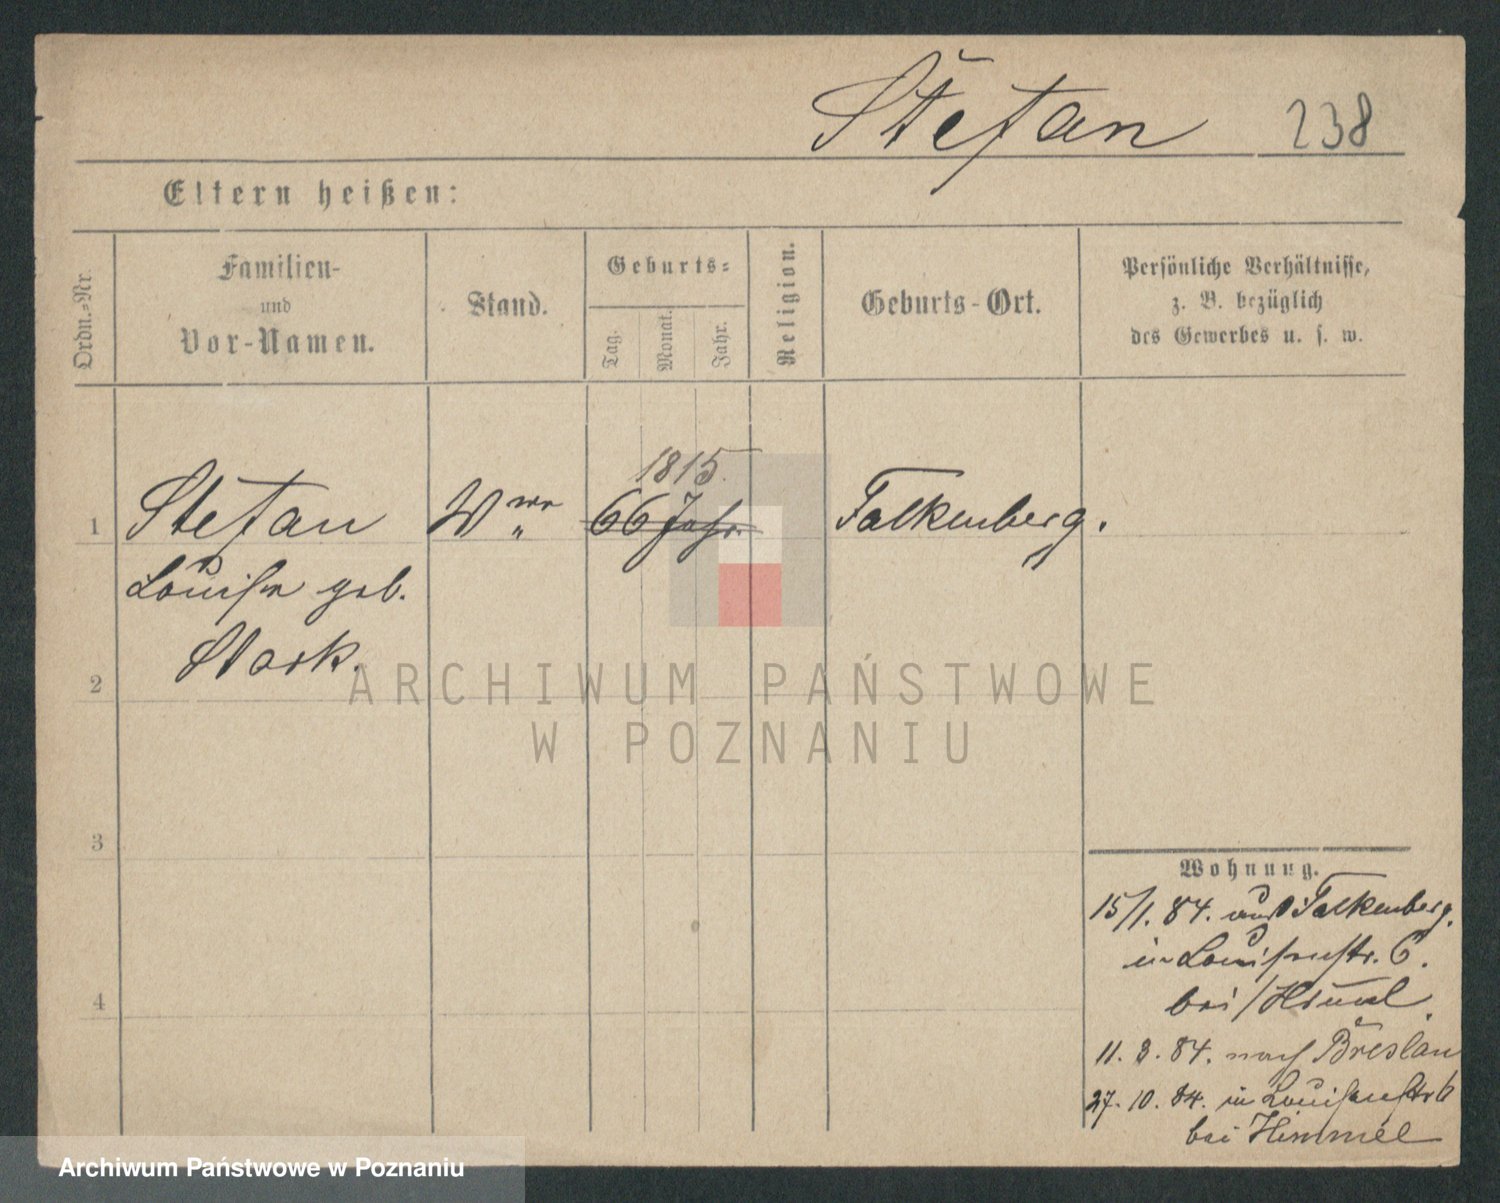 Stefan 238
Eltern heißen:
Ordn.-Nr.
Familien-
und
Vor-Namen.
Stand.
Geburts-
Tag.
Monat.
Jahr.
Religion.
Geburts-Ort.
Persönliche Verhältnisse,
z. B. bezüglich
des Gewerbes u. s. w.
1815.
1 Stefan Wwe 66 Jahr. Falkenberg.
Louise geb.
2 Stark.
ARCHIWUM PAŃSTWOWE
W POZNANIU
3
Wohnung.
15/1. 84. aus Falkenberg.
in Louisenstr. 6.
4 bei Himmel.
11. 3. 84. nach Breslau
27. 10. 84. in Louisenstr 6
bei Himmel
Archiwum Państwowe w Poznaniu